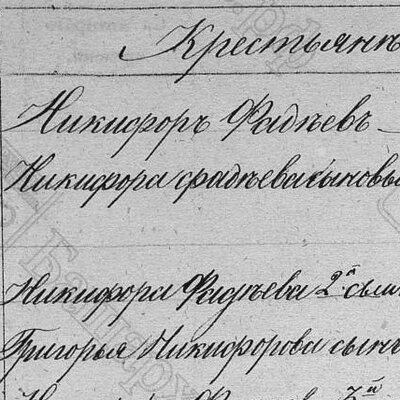 Крестьянъ
Никифоръ Фадѣевъ
Никифора Фадѣева сыновья
Никифора Фадѣева 2й сынъ
Григорья Никифорова сынъ
3й